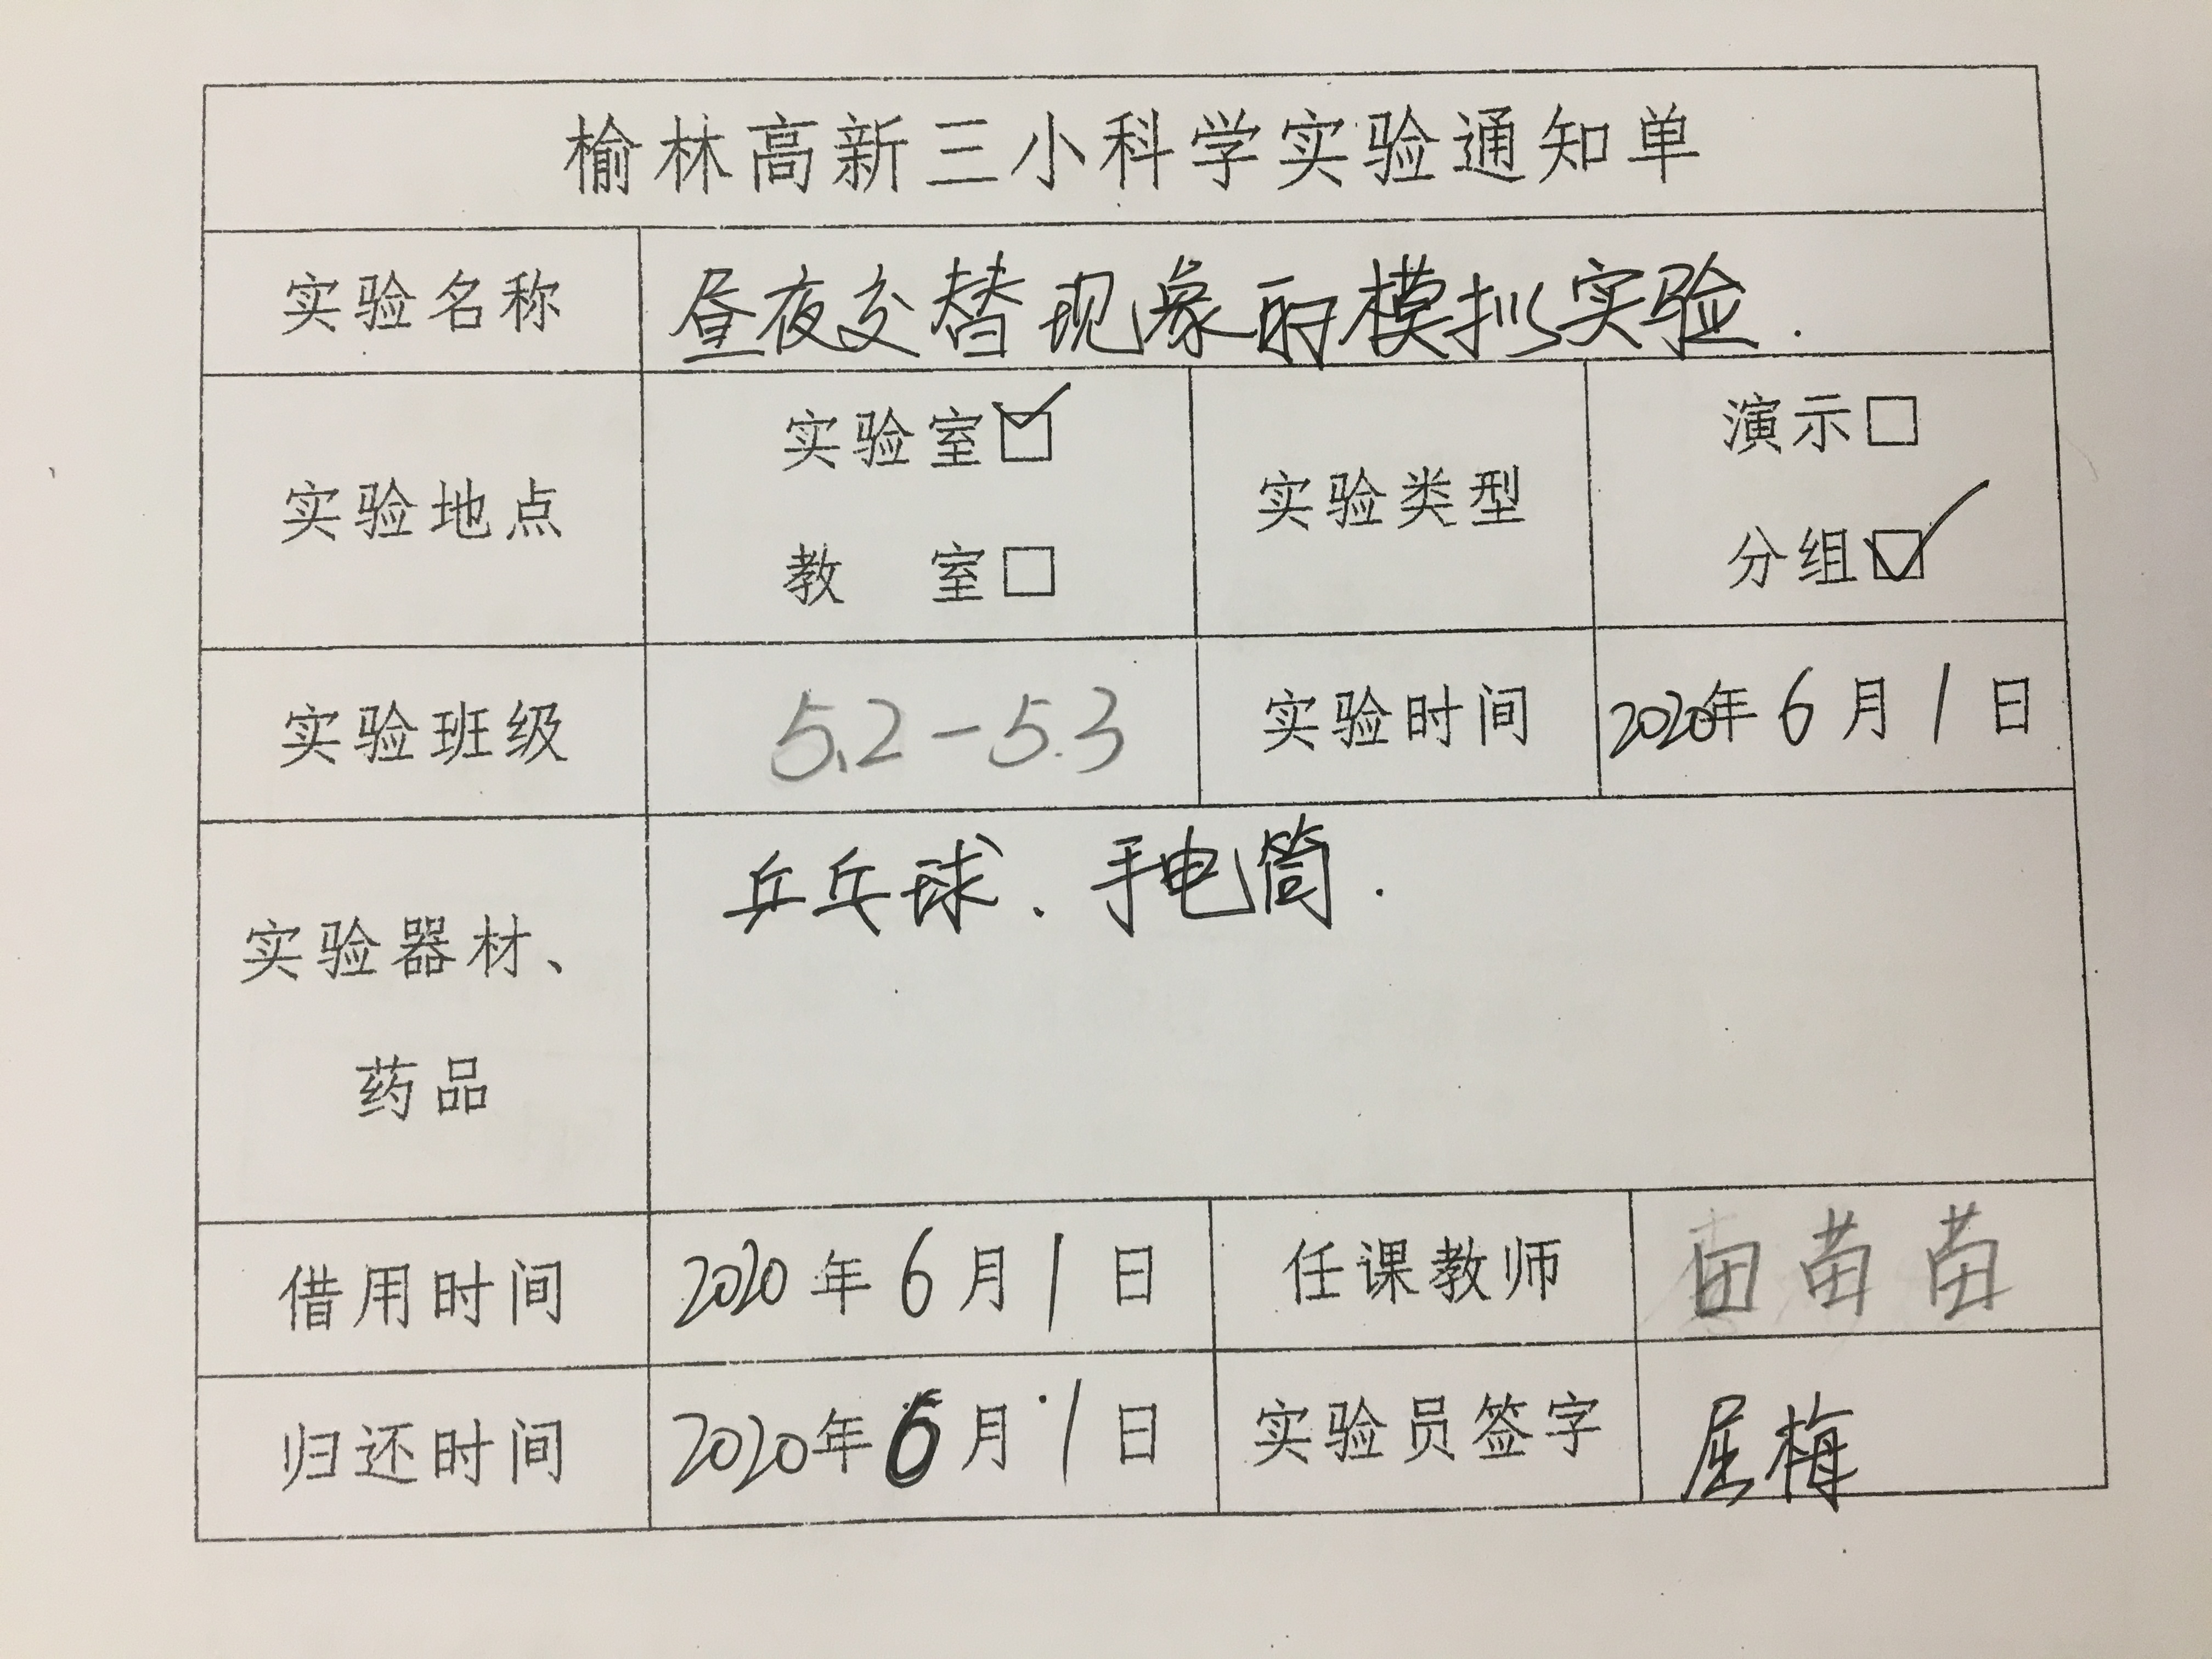 榆林高新三小科学实验通知单
实验名称 昼夜交替现象的模拟实验.
实验地点 实验室☑ 教 室☐ 实验类型 演示☐ 分组☑
实验班级 5.2-5.3 实验时间 2020年6月1日
实验器材、药品 乒乓球、手电筒.
借用时间 2020年6月1日 任课教师 苗苗
归还时间 2020年6月1日 实验员签字 屈梅